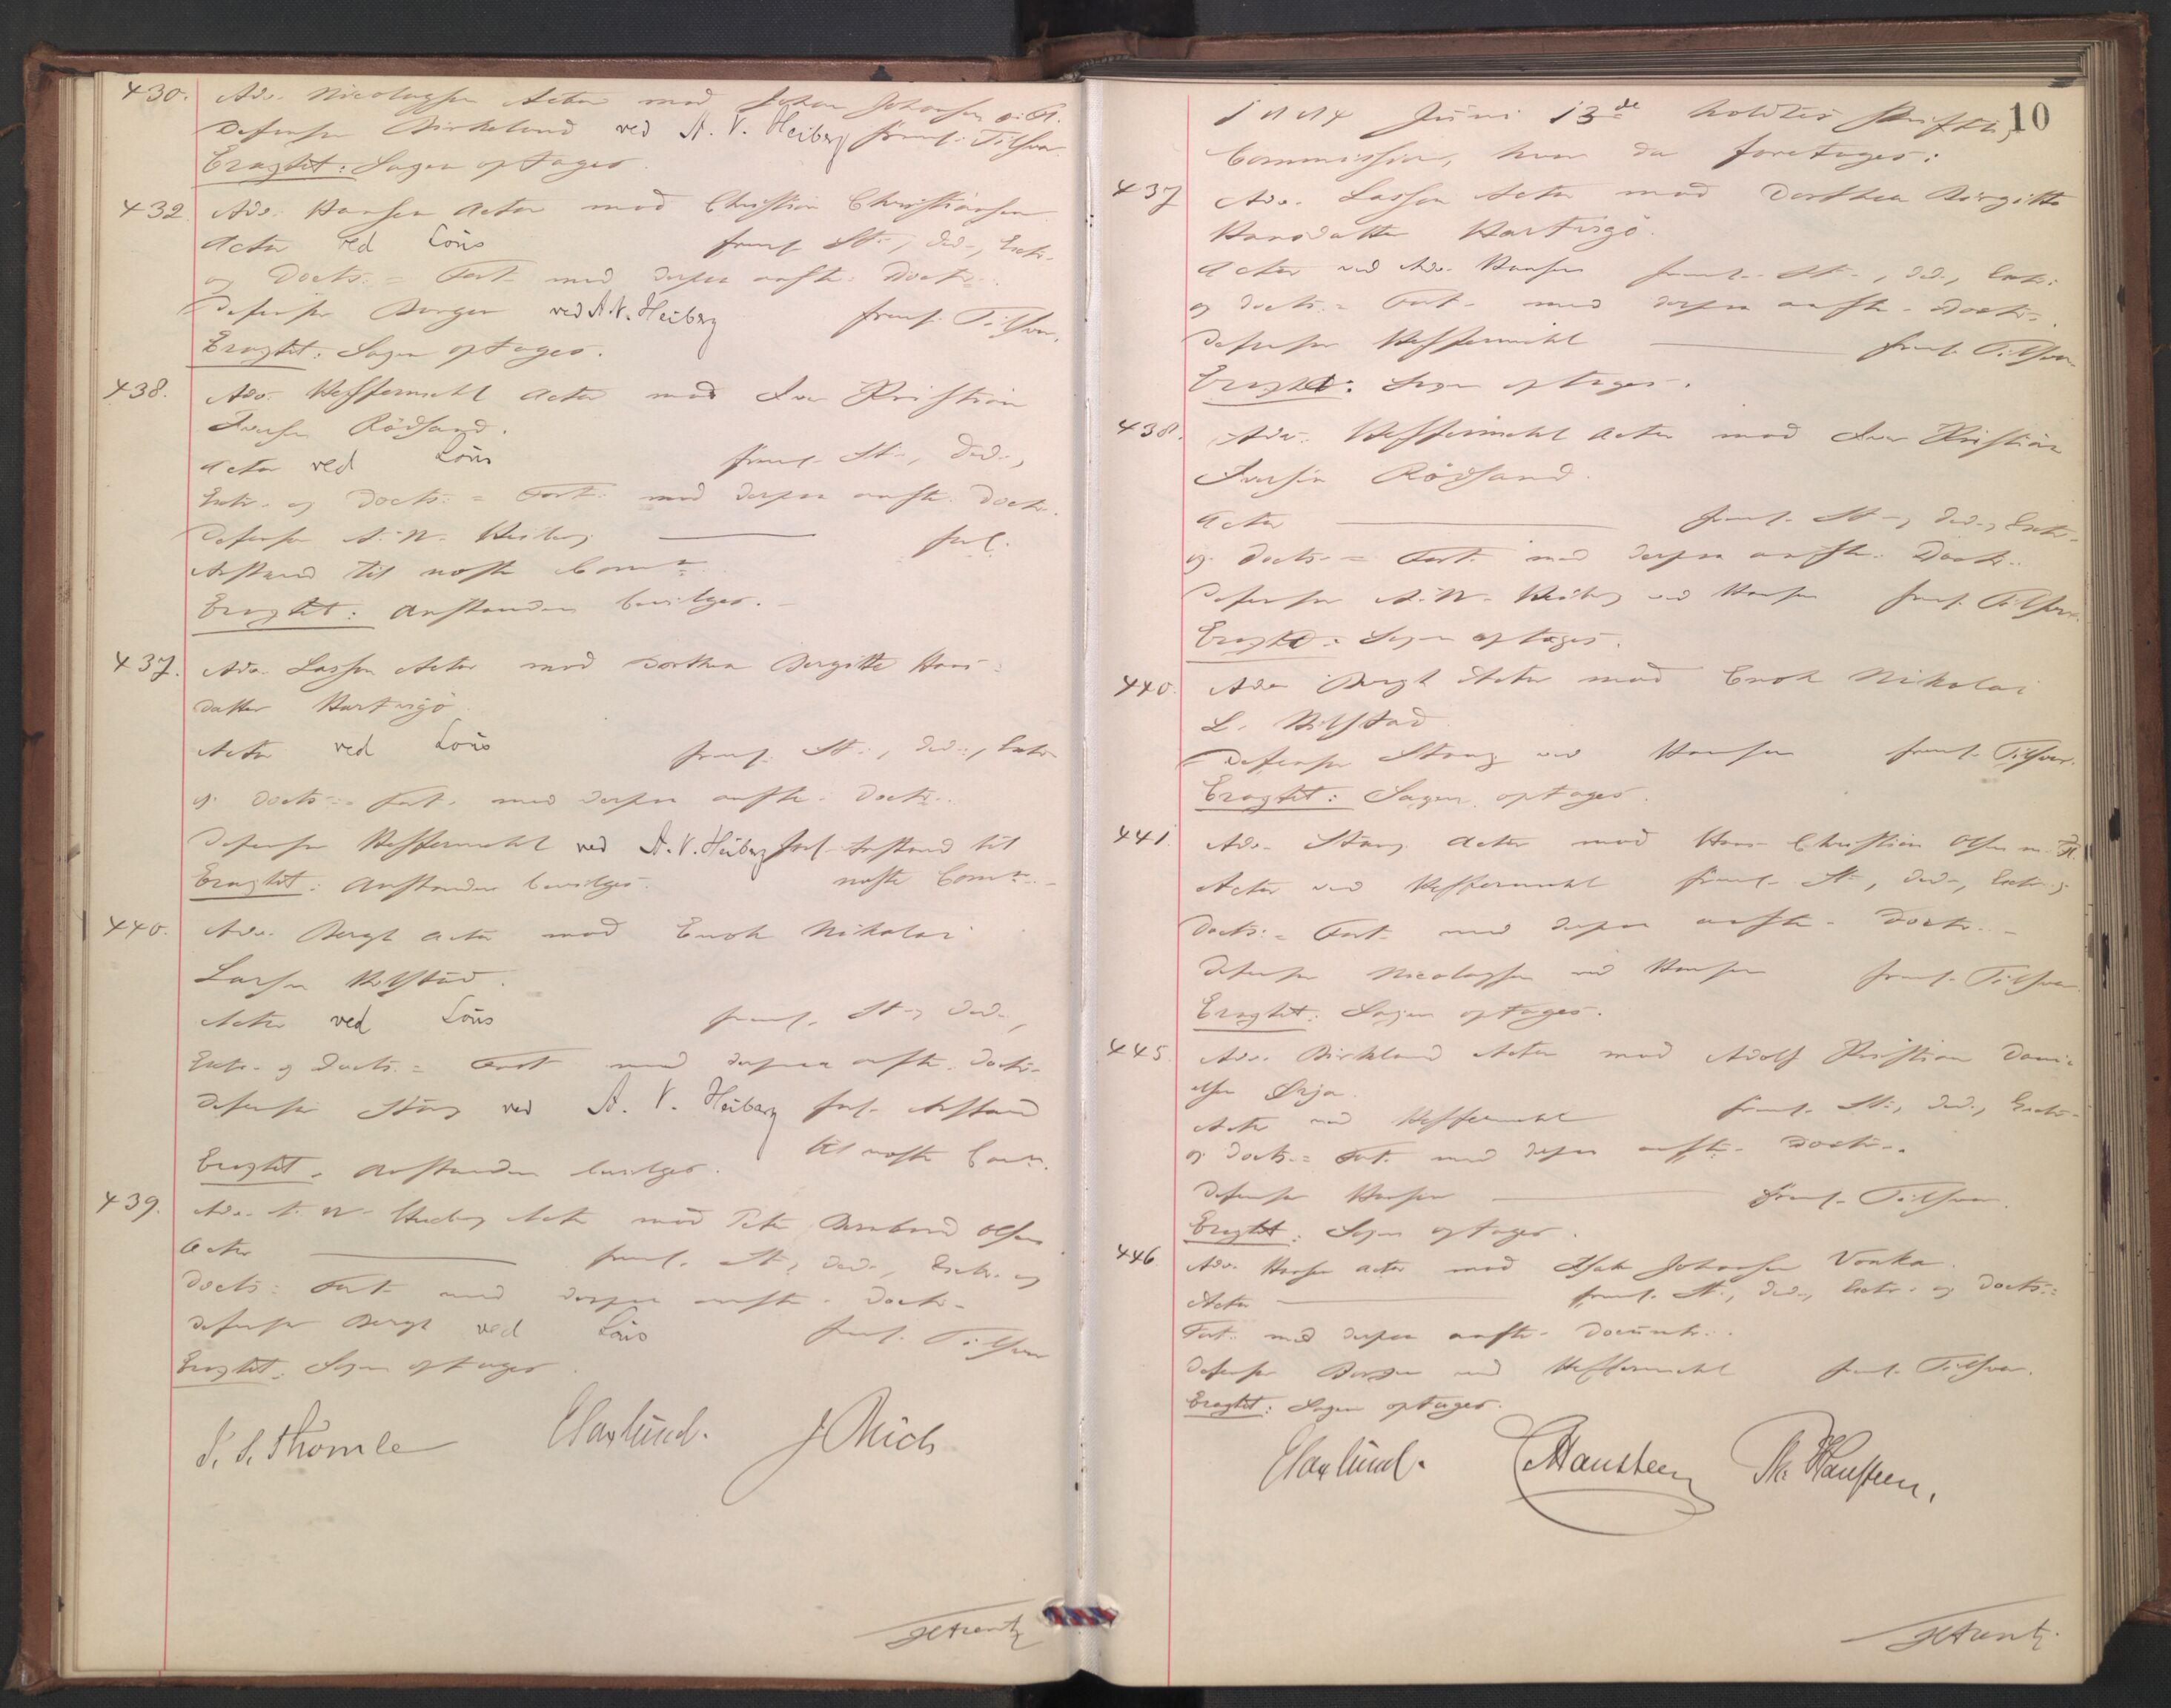 430. Adv. Nicolaysen Actor mod Johan Johansen m. Fl.
Defensor Birkeland ved A. V. Heiberg freml. Tilsvar.
Eragtet: Sagen optages.
432. Adv. Hansen Actor mod Christian Christiansen
Actor ved Lous freml. St-, Ded-, Extr-
og Docts.= Fort. med derpaa anfte. Doctr.
Defensor Berger ved A. V. Heiberg freml. Tilsvar.
Eragtet: Sagen optages.
438. Adv. Heffermehl Actor mod Iver Kristian
Iversen Rödsand.
Actor ved Lous freml. St-, Ded-,
Extr- og Docts.= Fort. med derpaa anfte. Doctr.
Defensor A. W. Heiberg forl.
Anstand til næste Comn.
Eragtet: Anstanden bevilges.
437. Adv. Lassen Actor mod Dorthea Bergitte Hans=
datter Hartvigö
Actor ved Lous freml. St-, Ded-, Extr-
og Docts.= Fort. med derpaa anfte. Doctr.
Defensor Heffermehl ved A. V. Heiberg forl. Anstand til
Eragtet: Anstanden bevilges. næste Comn.
440. Adv. Bergh Actor mod Enok Nikolai
Larsen
Actor ved Lous freml. St-, Ded-,
Extr- og Docts.= Fort med derpaa anfte. Doctr.
Defensor Stang ved A. V. Heiberg forl. Anstand
til næste Comn.
Eragtet. Anstanden bevilges.
439. Adv. A. W. Heiberg Actor mod Peter Olsen
Actor freml. St-, Ded-, Extr- og
Docts.= Fort. med derpaa anfte. Doctr.
Defensor Bergh ved Lous freml. Tilsvar
Eragtet. Sagen optages.
Thomle E Haxlund. J Mich
10
Juni 13de holdtes Skriftlig
Commission, hvor da foretages:
437 Adv. Lassen Actor mod Dorthea Birgitte
Hansdatter Hartvigö.
Actor ved Adv. Hansen freml. St-, Ded-, Extr-
og Docts.= Fort. med derpaa anfte. Doctr.
Defensor Heffermehl freml. Tilsvar
Eragtet: Sagen optages.
438. Adv. Heffermehl Actor mod Iver Kristian
Iversen Rödsand.
Actor freml. St-, Ded-, Extr-
og Docts.= Fort. med derpaa anfte. Doctr.
Defensor A. W. Heiberg ved Hansen freml. Tilsvar.
Eragtet: Sagen optages.
440. Adv Bergh Actor mod Enok Nikolai
L.
Defensor Stang ved Hansen freml. Tilsvar.
Eragtet: Sagen optages.
441. Adv. Stang Actor mod Hans Christian Olsen m. Fl.
Actor ved Heffermehl freml. St-, Ded-, Extr- og
Docts.= Fort. med derpaa anfte. Doctr.
Defensor Nicolaysen ved Hansen freml. Tilsvar
Eragtet: Sagen optages.
445. Adv. Birkeland Actor mod Adolf Kristian Dani=
elsen
Actor ved Heffermehl freml. St-, Ded-, Extr-
og Docts.= Fort. med derpaa anfte. Doctr.
Defensor Hansen freml. Tilsvar.
Eragtet: Sagen optages.
446. Adv. Hansen Actor mod Isak Johansen Vonka.
Actor freml. St-, Ded-, Extr- og Docts.=
Fort. med derpaa anfte. Documtr.
Defensor Berger ved Heffermehl freml. Tilsvar.
Eragtet: Sagen optages.
E Haxlund. C Hansteen Th. Hansteen.